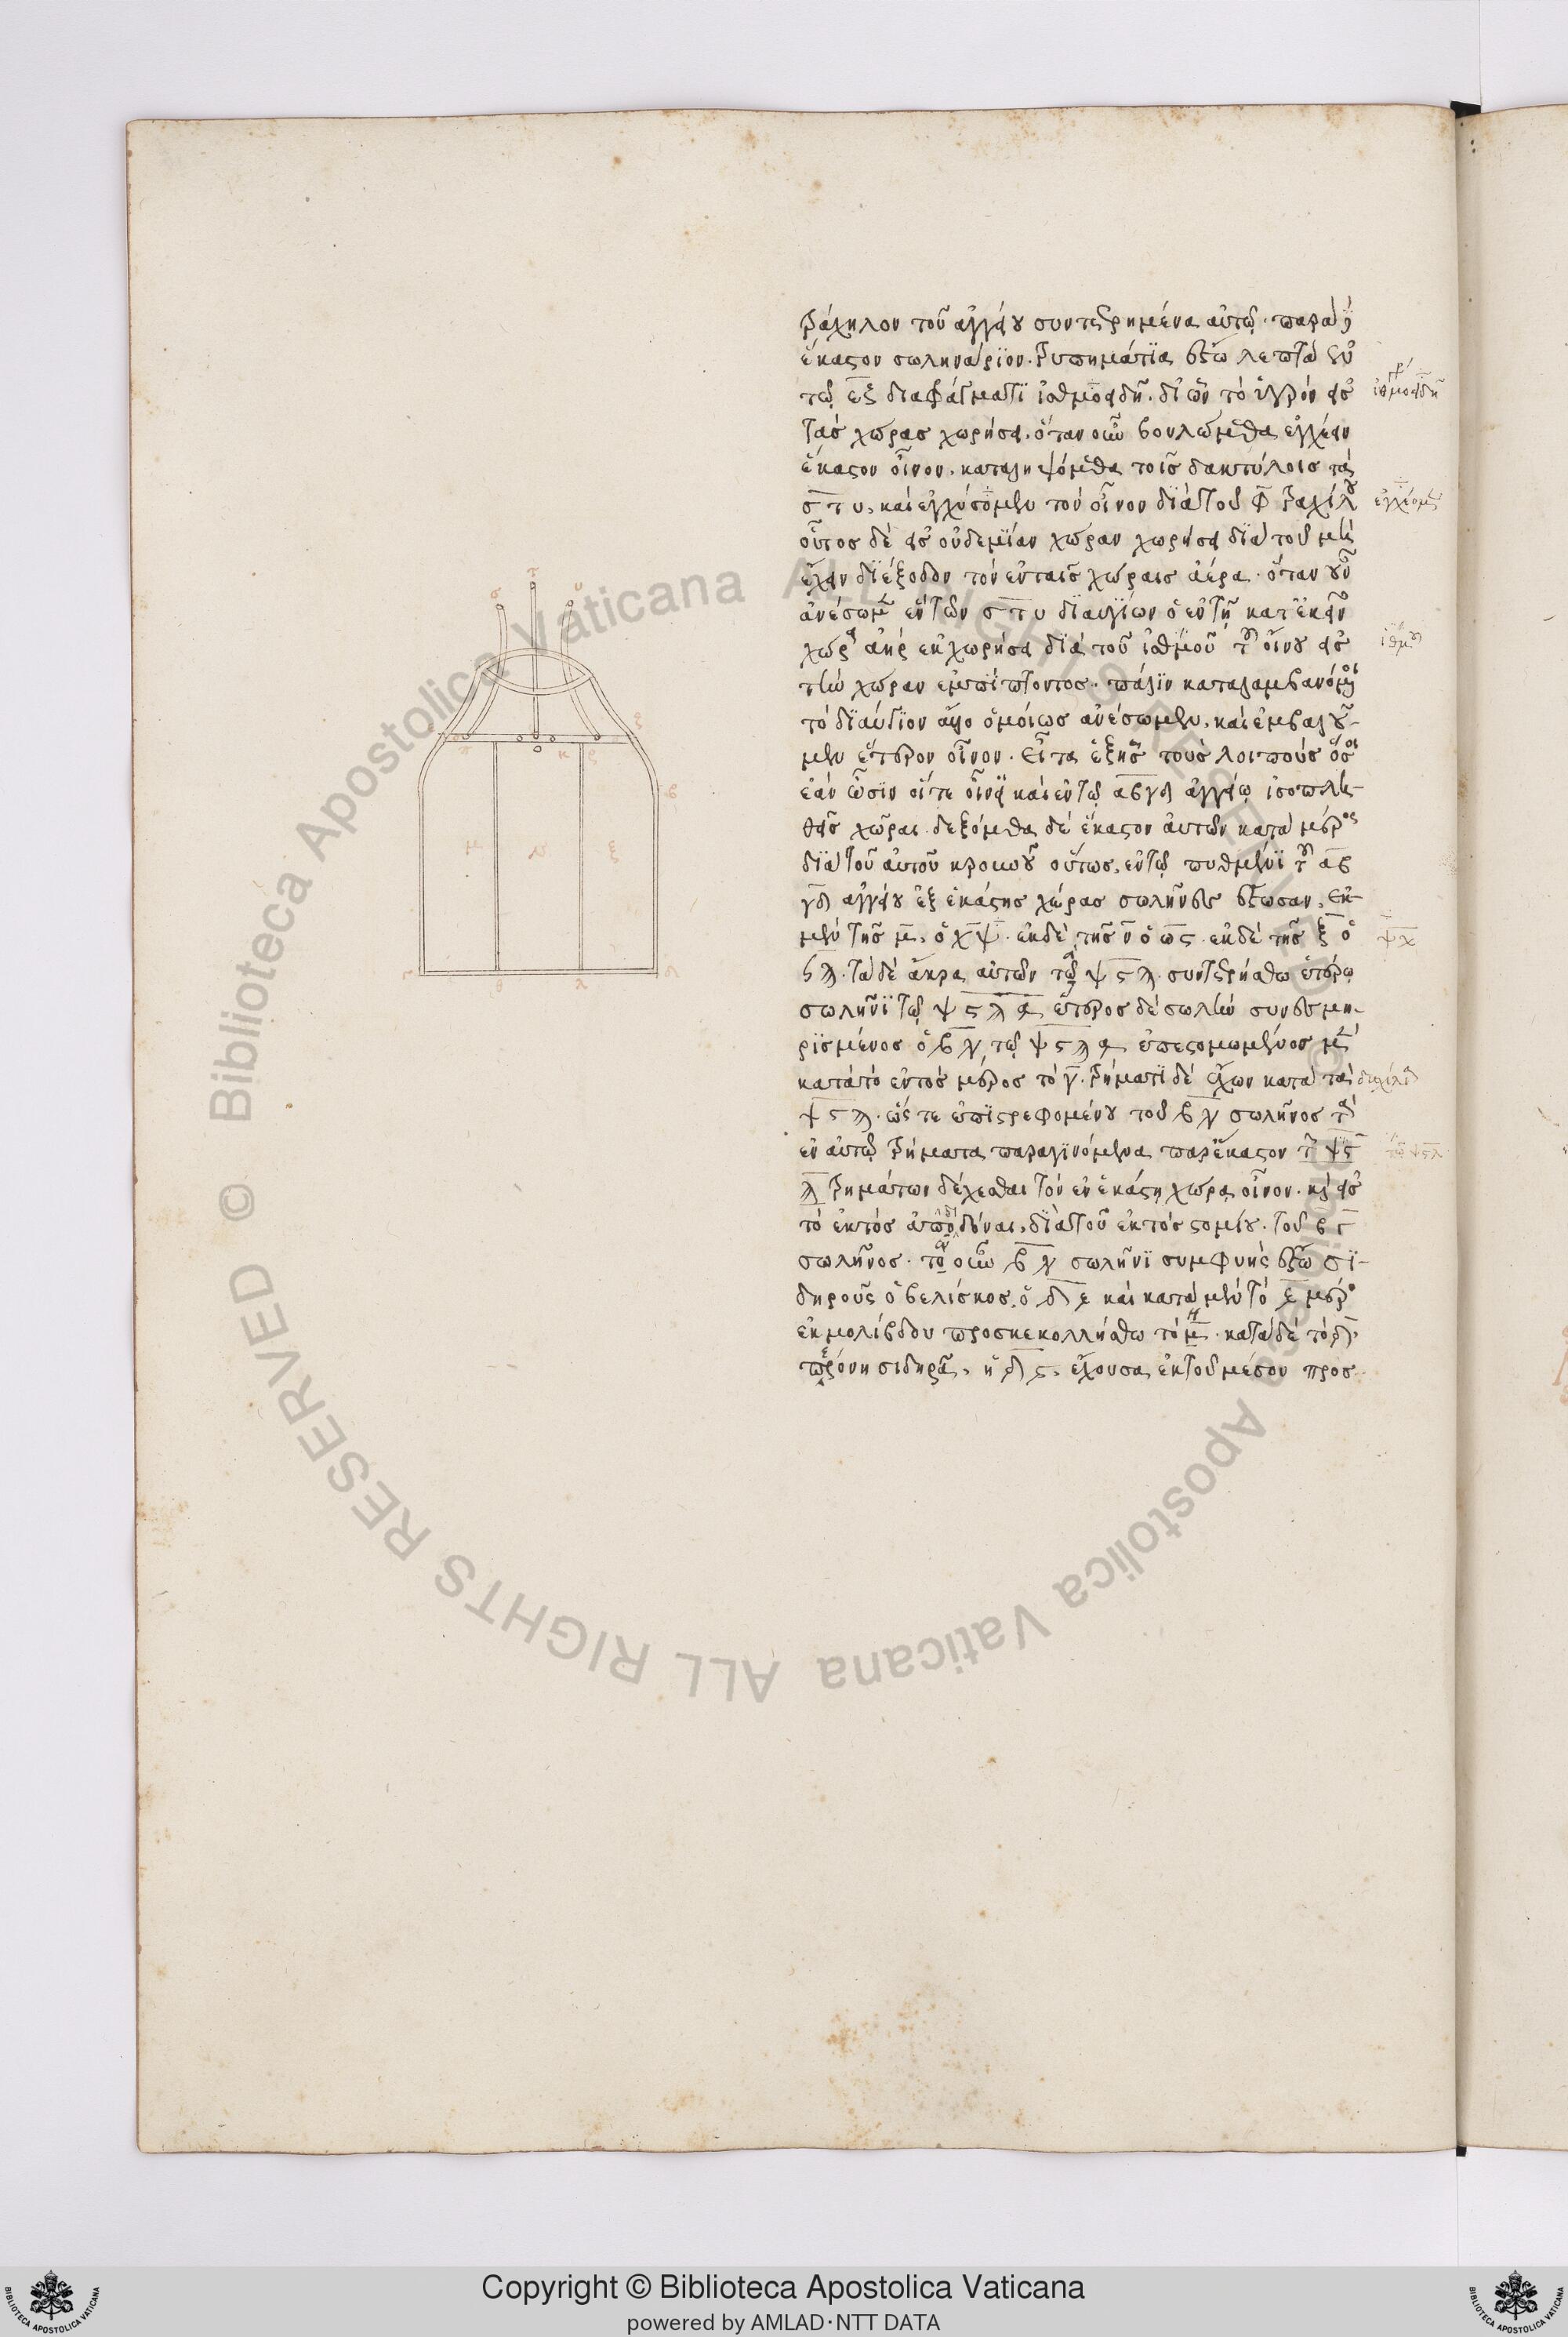 τράχηλον τοῦ ἀγγείου συντετρημένα αὐτῷ· παρὰ δὲ
ἕκαστον σωληνάριον· τρυπημάτια ἔστω λεπτὰ ἐν
τῷ εξ διαφράγματι ἰσθμοειδῆ· δι' ὧν τὸ ὑγρὸν εἰς
τὰς χώρας χωρήσει· ὅταν οὖν βουλώμεθα ἐγχέειν
ἕκαστον οἶνον, καταληψόμεθα τοῖς δακτύλοις τὰ
σ τ υ, καὶ ἐγχύσομεν τὸν οἶνον διὰ τοῦ φ τραχήλου
οὗτος δὲ εἰς οὐδεμίαν χώραν χωρήσει διὰ τοῦ μὴ
ἔχειν διέξοδον τὸν ἐν ταῖς χώραις ἀέρα· ὅταν οὖν
ἀνέσωμεν ἓν τῶν σ τ υ διαυγίων ὁ ἐν τῇ κατ' ἐκεῖνο
χώρᾳ ἀὴρ ἐκχωρήσει διὰ τοῦ ἰσθμίου τοῦ οἴνου εἰς
τὴν χώραν ἐμπίπτοντος· πάλιν καταλαμβανόμενοι
τὸ διαύγιον ἄλλο ὁμοίως ἀνέσωμεν, καὶ ἐμβαλοῦ-
μεν ἕτερον οἶνον· εἶτα ἑξῆς τοὺς λοιποὺς ὅσοι
ἐὰν ὦσιν οἵ τε οἶνοι καὶ ἐν τῷ αβγδ ἀγγείῳ ἰσοπλη-
θεῖς χῶραι· δεξόμεθα δὲ ἕκαστον αὐτῶν κατὰ μέρος
διὰ τοῦ αὐτοῦ κρουνοῦ οὕτως, ἐν τῷ πυθμένι τοῦ αβ
γδ ἀγγείου ἐξ ἑκάστης χώρας σωλῆνες ἔστωσαν, ἐκ
μὲν τῆς μ, ὁ χψ· ἐκ δὲ τῆς ν ὁ ως· ἐκ δὲ τῆς ξ ὁ
τὰ δὲ ἄκρα αὐτῶν τὰ ψ ς ϡ συντετρήσθω ἑτέρῳ
σωλῆνι τῷ ψ ς ϡ ἕτερος δὲ σωλὴν συνεσμη-
ρισμένος ὁ β γ τῷ ψ ς ϡ ἐπεστομωμένος μὲν
κατὰ τὸ ἐντὸς μέρος τὸ γ· τρήματι δὲ ἔχων κατὰ τὰ
ψ ς ϡ· ὥστε ἐπιστρεφομένου τοῦ β γ σωλῆνος τὰ
ἐν αὐτῷ τρήματα παραγινόμενα παρ' ἕκαστον τῶν ψ ς
ϡ τρημάτων δέχεσθαι τὸν ἐν ἑκάστῃ χώρᾳ οἶνον· καὶ εἰς
τὸ ἐκτὸς ἀποδιδόναι, διὰ τοῦ ἐκτὸς στομίου τοῦ β γ
σωλῆνος· τῷ οὖν β γ σωλῆνι συμφυὴς ἔστω σι-
δηροῦς ὀβελίσκος, ὁ καὶ κατὰ μὲν τὸ μέρος
ἐκ μολίβδου προσκεκολλήσθω τὸ μη· κατὰ δὲ τὸ
περόνη σιδηρᾶ, ἡ ἔχουσα ἐκ τοῦ μέσου προσ-
ἰσθμοειδῆ
ἐγχέομεν
ἰσθμοῦ
ψχ
σ
τ
υ
ξ
π
κ
ρ
β
μ
ν
ξ
γ
θ
λ
δ
Biblioteca Apostolica Vaticana ALL RIGHTS RESERVED ©
Copyright © Biblioteca Apostolica Vaticana
powered by AMLAD·NTT DATA